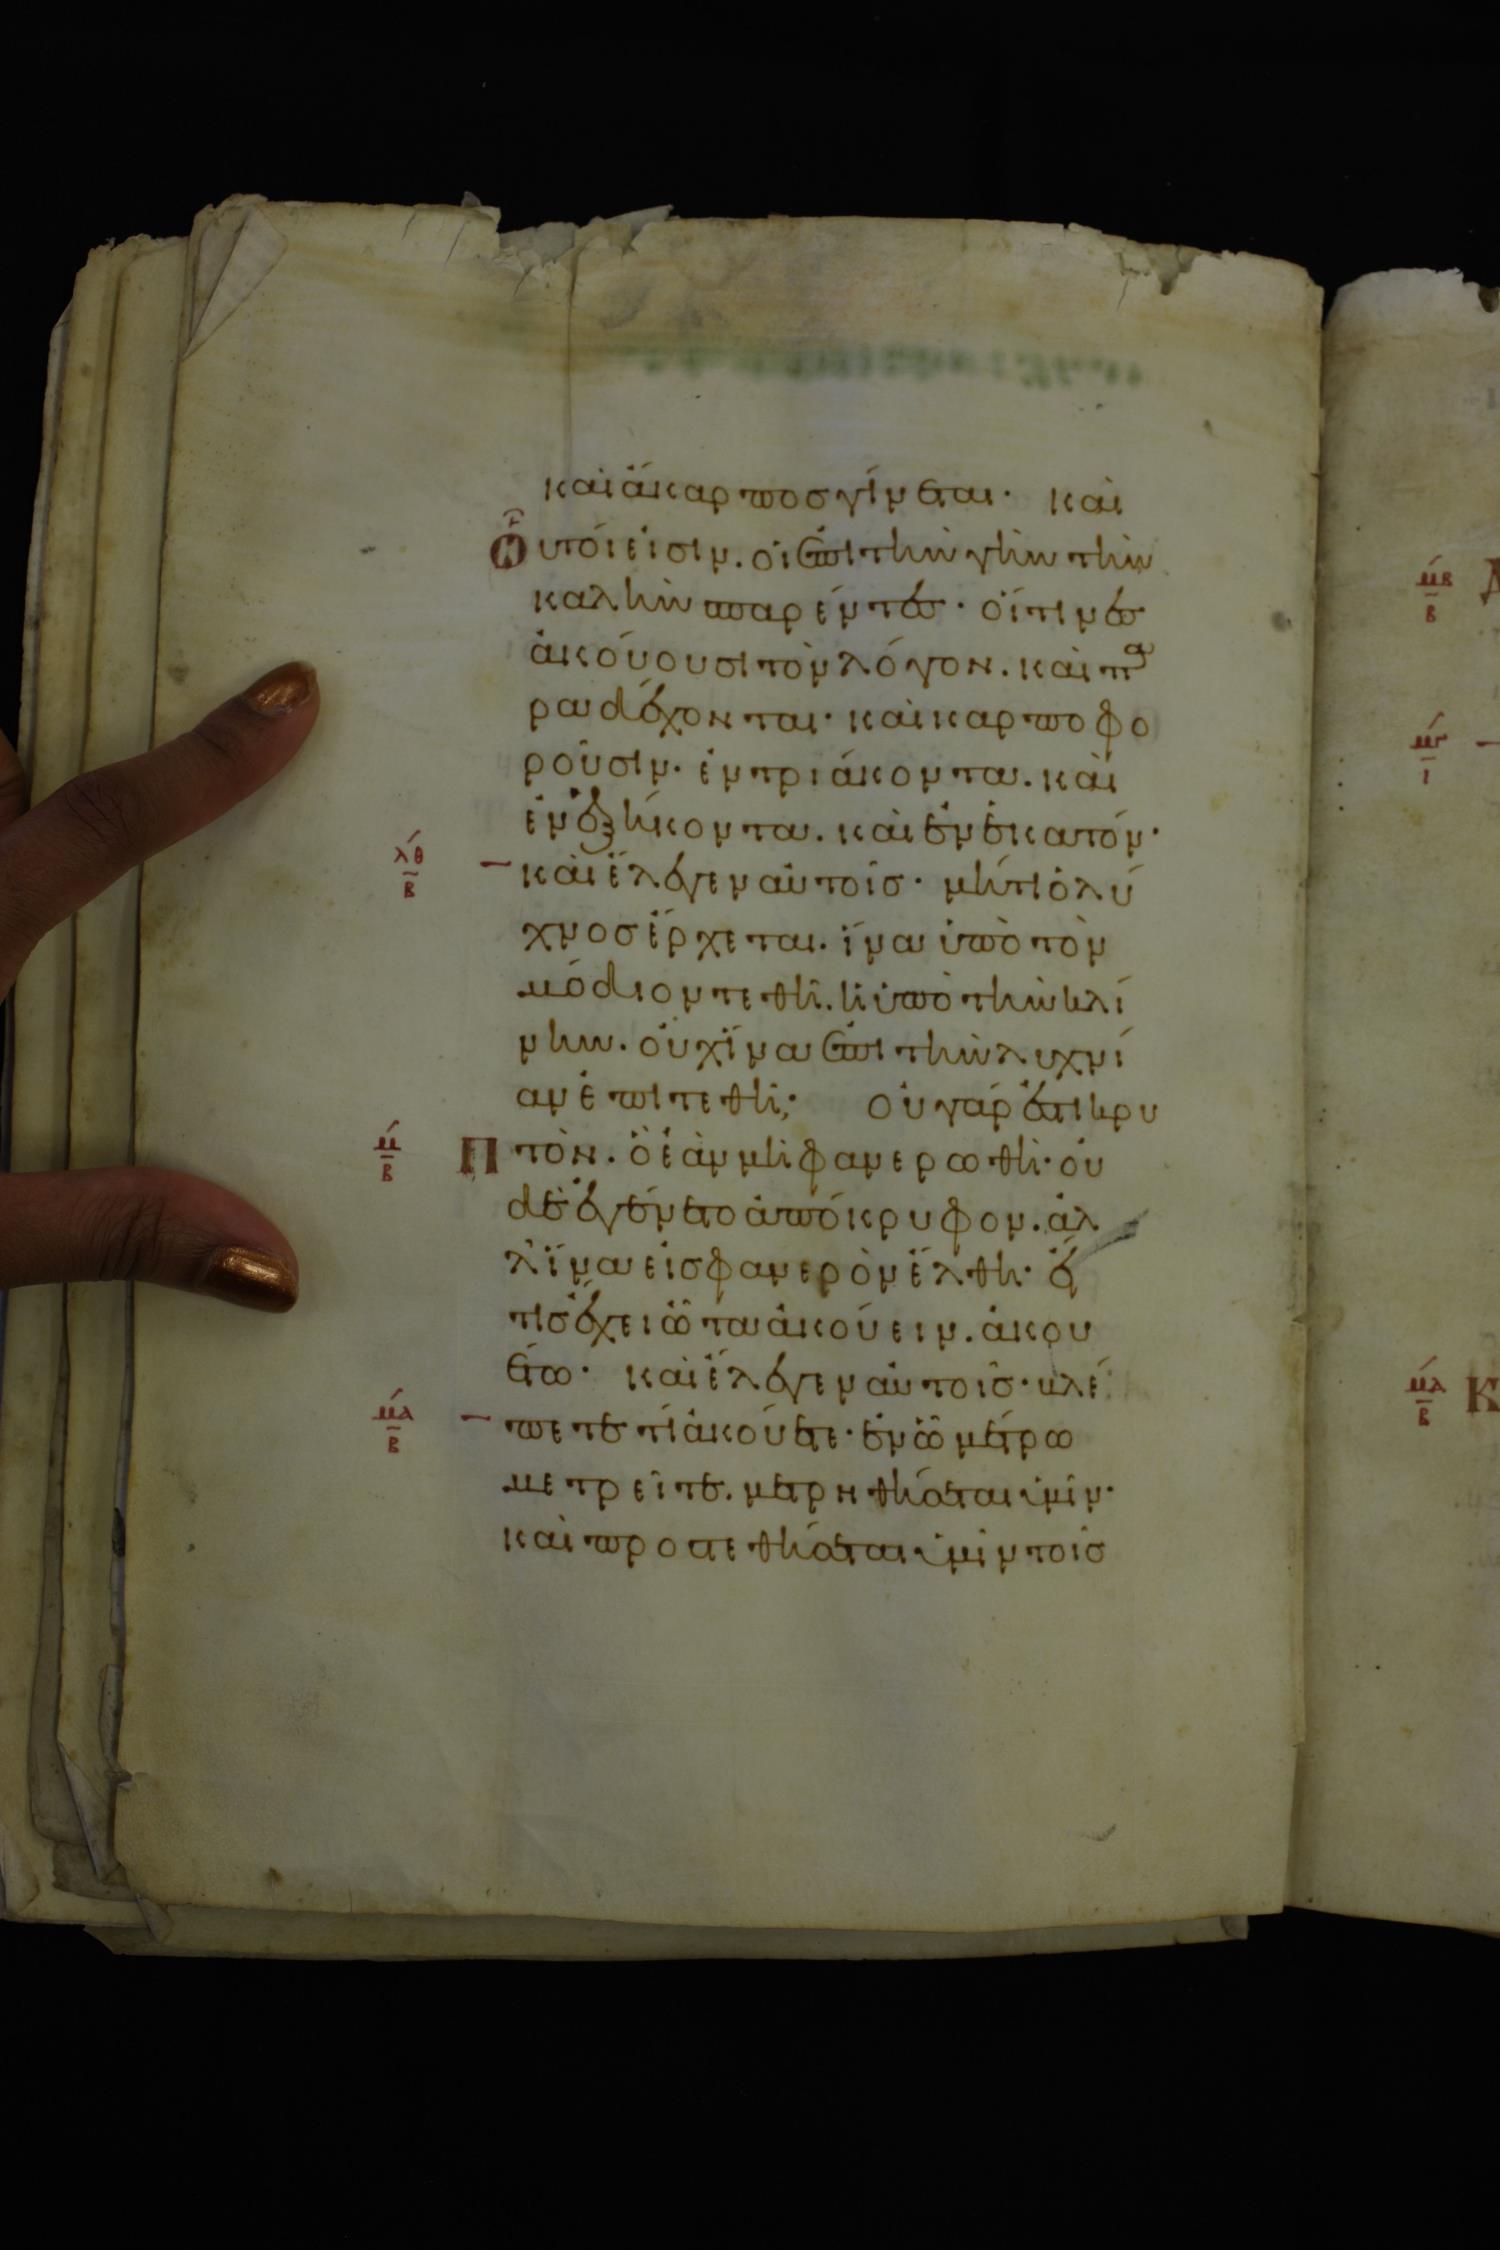 καὶ ἄκαρποσ γίνεται· καὶ
Ουτοί εἰσιν. οἱ ἐπι τὴν γὴν τὴν
καλὴν σπαρέντεσ· οἵτινεσ
ἀκούουσι τὸν λόγον. καὶ πα
ραδέχονται· καὶ καρποφο
ροῦσιν· ἐν τριάκοντα. καὶ
ἐν ἑξήκοντα. καὶ ἐν ἑκατόν·
λθ
β
καὶ ἔλεγεν αὐτοίσ· μήτι ὁ λύ
χνοσ ἔρχεται. ἵνα ὑπὸ τὸν
μόδιον τεθῆ. ἢ ὑπὸ τὴν κλί
νην. οὐχ ἵνα ἐπι τὴν λυχνί
αν ἐπιτεθῆ; οὐ γάρ ἐστι κρυ
μ
β
Πτὸν. ὃ ἐὰν μὴ φανερωθῆ· οὐ
δὲ ἐγένετο ἀπόκρυφον. ἀλ
λ' ἵνα εἰσ φανερὸν ἔλθη· εἴ
τισ ἔχει ὦτα ἀκούειν. ἀκου
έτω· καὶ ἔλεγεν αὐτοῖσ· βλέ
μα
β
πετε τί ἀκούετε· ἐν ὧ μέτρω
μετρεῖτε. μετρηθήσεται ὑμῖν·
καὶ προστεθήσεται ὑμῖν τοῖσ
μβ
β
μγ
ι
μδ
β
Κ